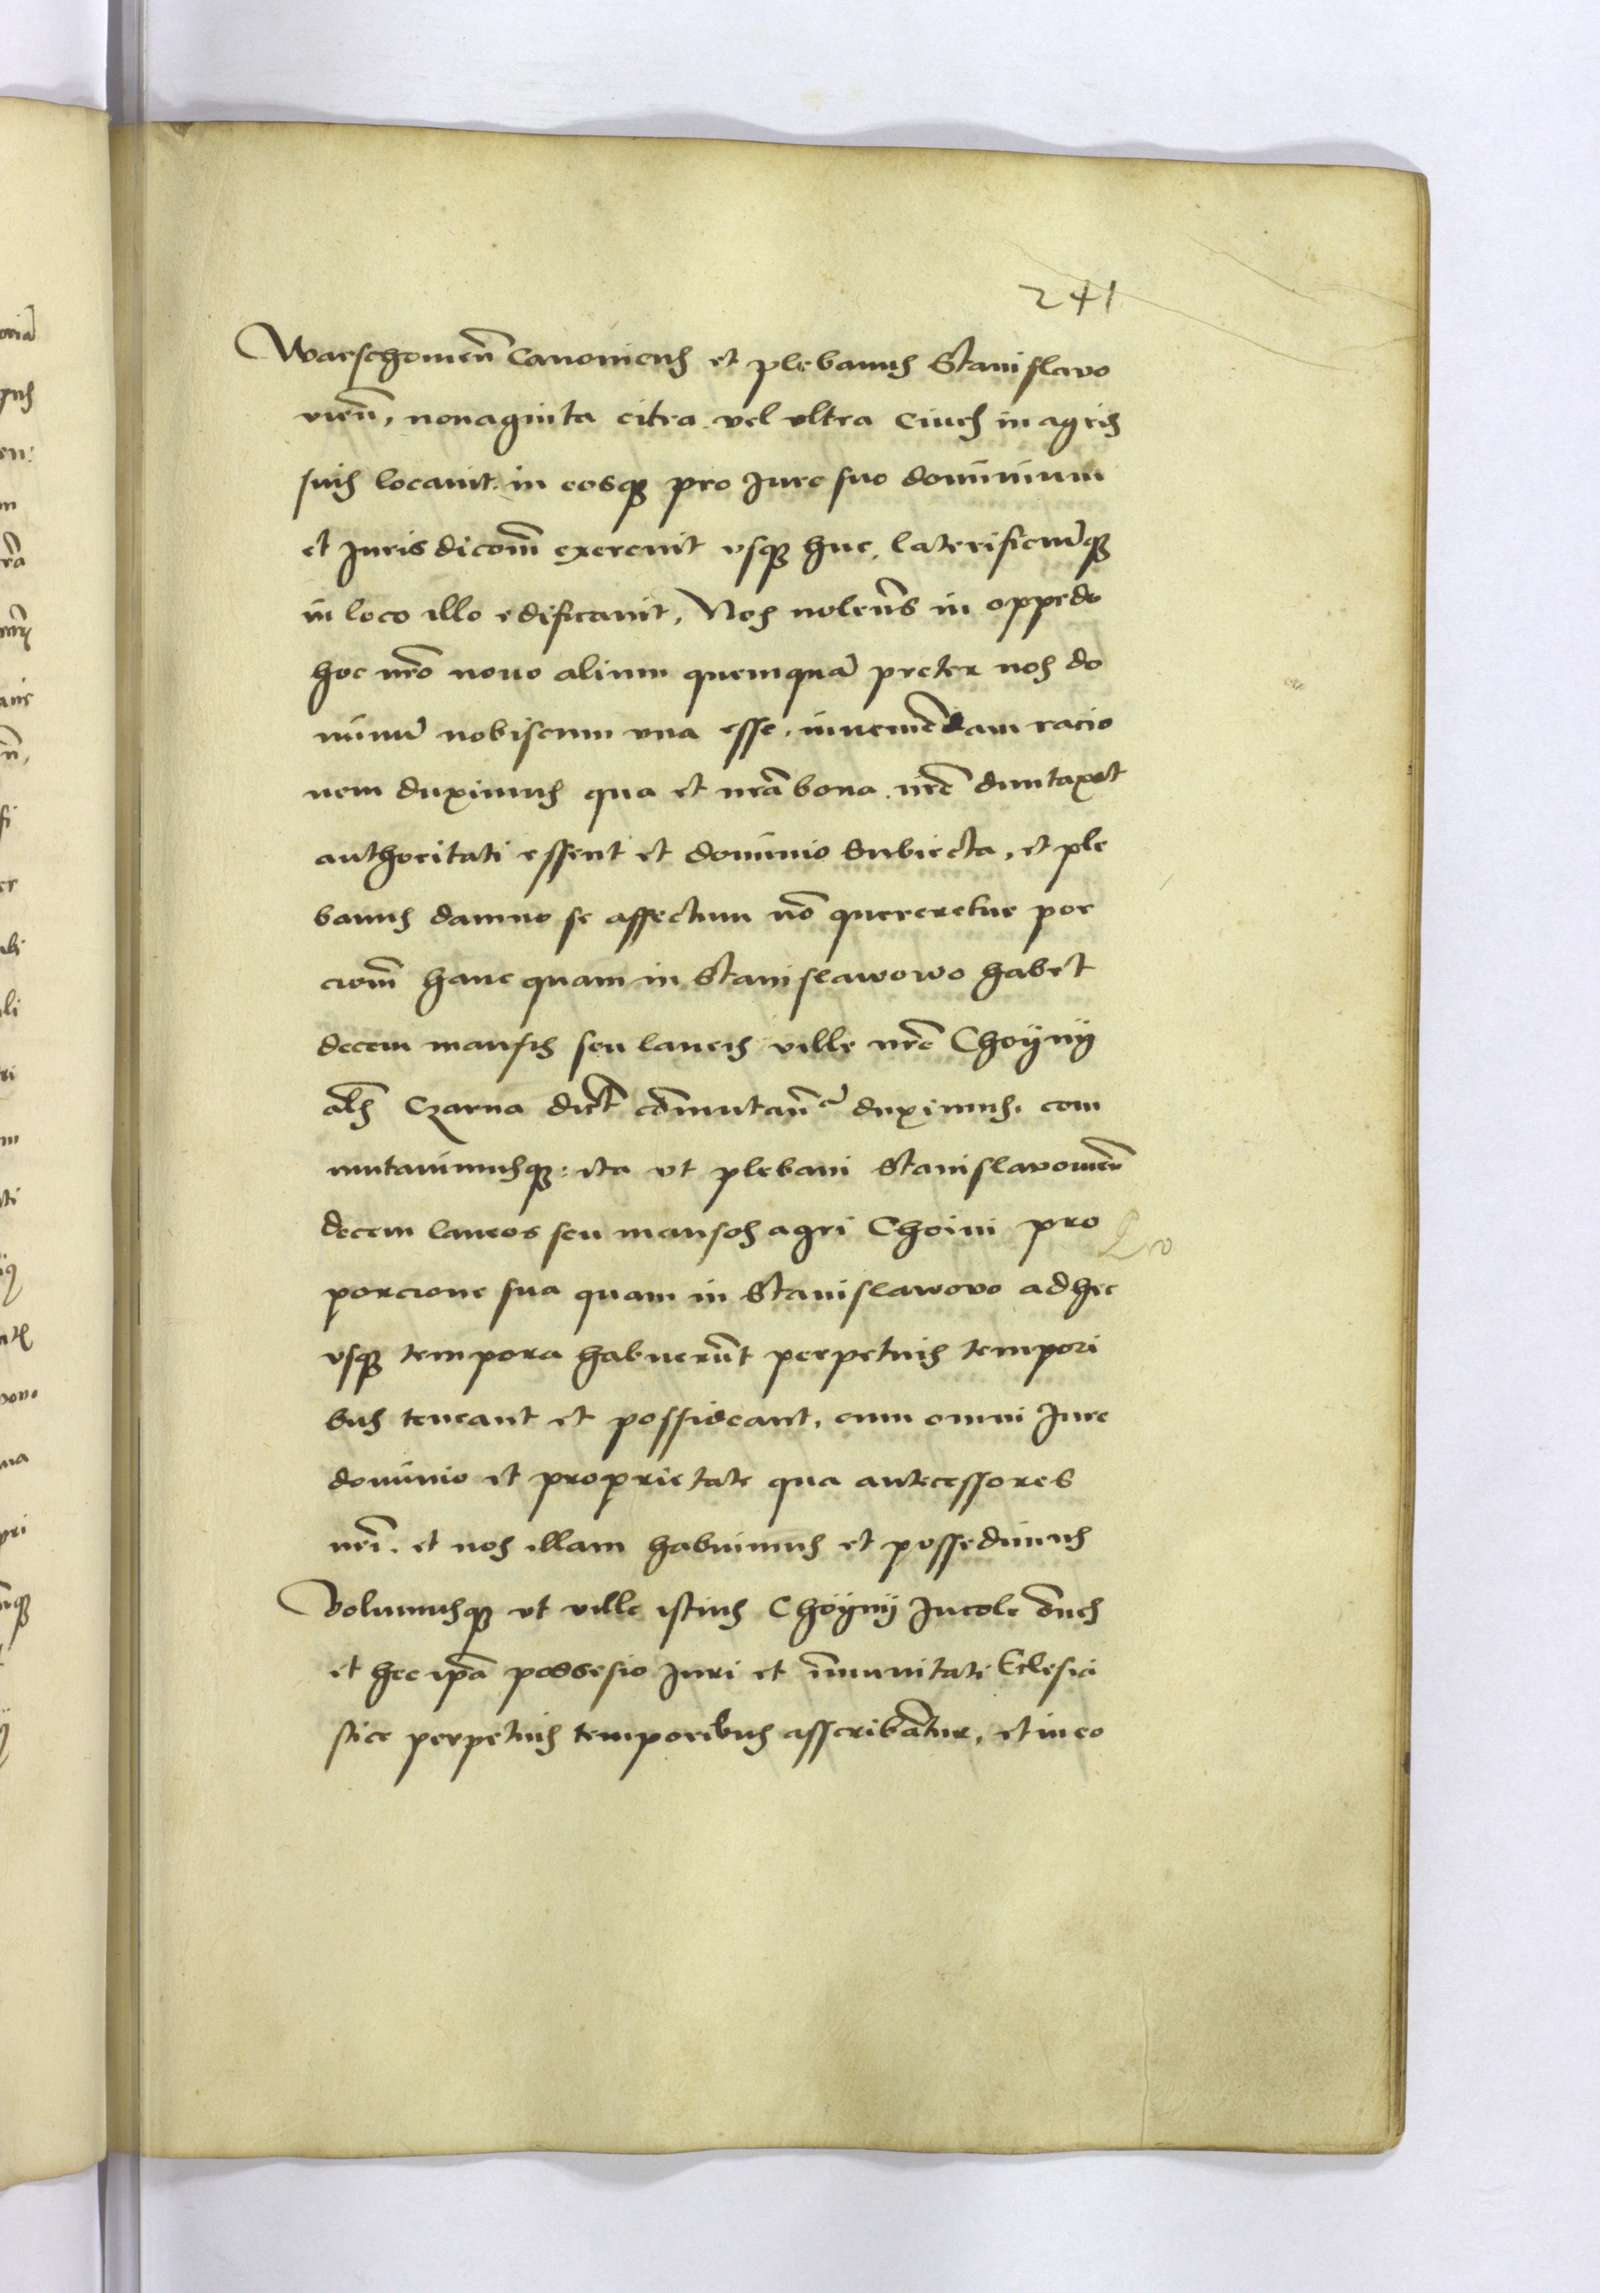 241
Warschouieñ Canonicus et plebanus Stanislavo
vieñ, nonaginta citra vel ultra Ciues in agris
suis locauit. in eosqꝫ pro Jure suo dominium
et Jurisdicōm exercuit usqꝫ huc, laterificiūqꝫ
in loco illo edificauit, Nos nolens in oppido
hoc nr̄o nouo alium quemquā preter nos do
minū nobiscum vna esse, inueniēdam racio
nem duximus qua et nr̄a bona nr̄e duntaxat
authoritati essent et dominio subiecta, et ple
banus damno se affectum nō quereretur por
ciom̄ hanc quam in Stanislawowo habet
decem mansis seu laneis ville nr̄e Choÿnÿ
al̄s Czarna dict̄ cōmutan̄ duximus, com
mutauimusqꝫ: ita vt plebani Stanislavouieñ
decem laneos seu mansos agri Choini pro
porcione sua quam in Stanislawovo ad hec
vsqꝫ tempora habuerūt perpetuis tempori
bus teneant et possideant, cum omni Jure
dominio et proprietate qua antecessores
nr̄i. et nos illam habuimus et possedimus
Volumusqꝫ vt ville istius Choÿnÿ Jncole om̄es
et hec ip̄a possesio Juri et īmunitati Eclesia
stice perpetuis temporibus asscribātur, et in eo